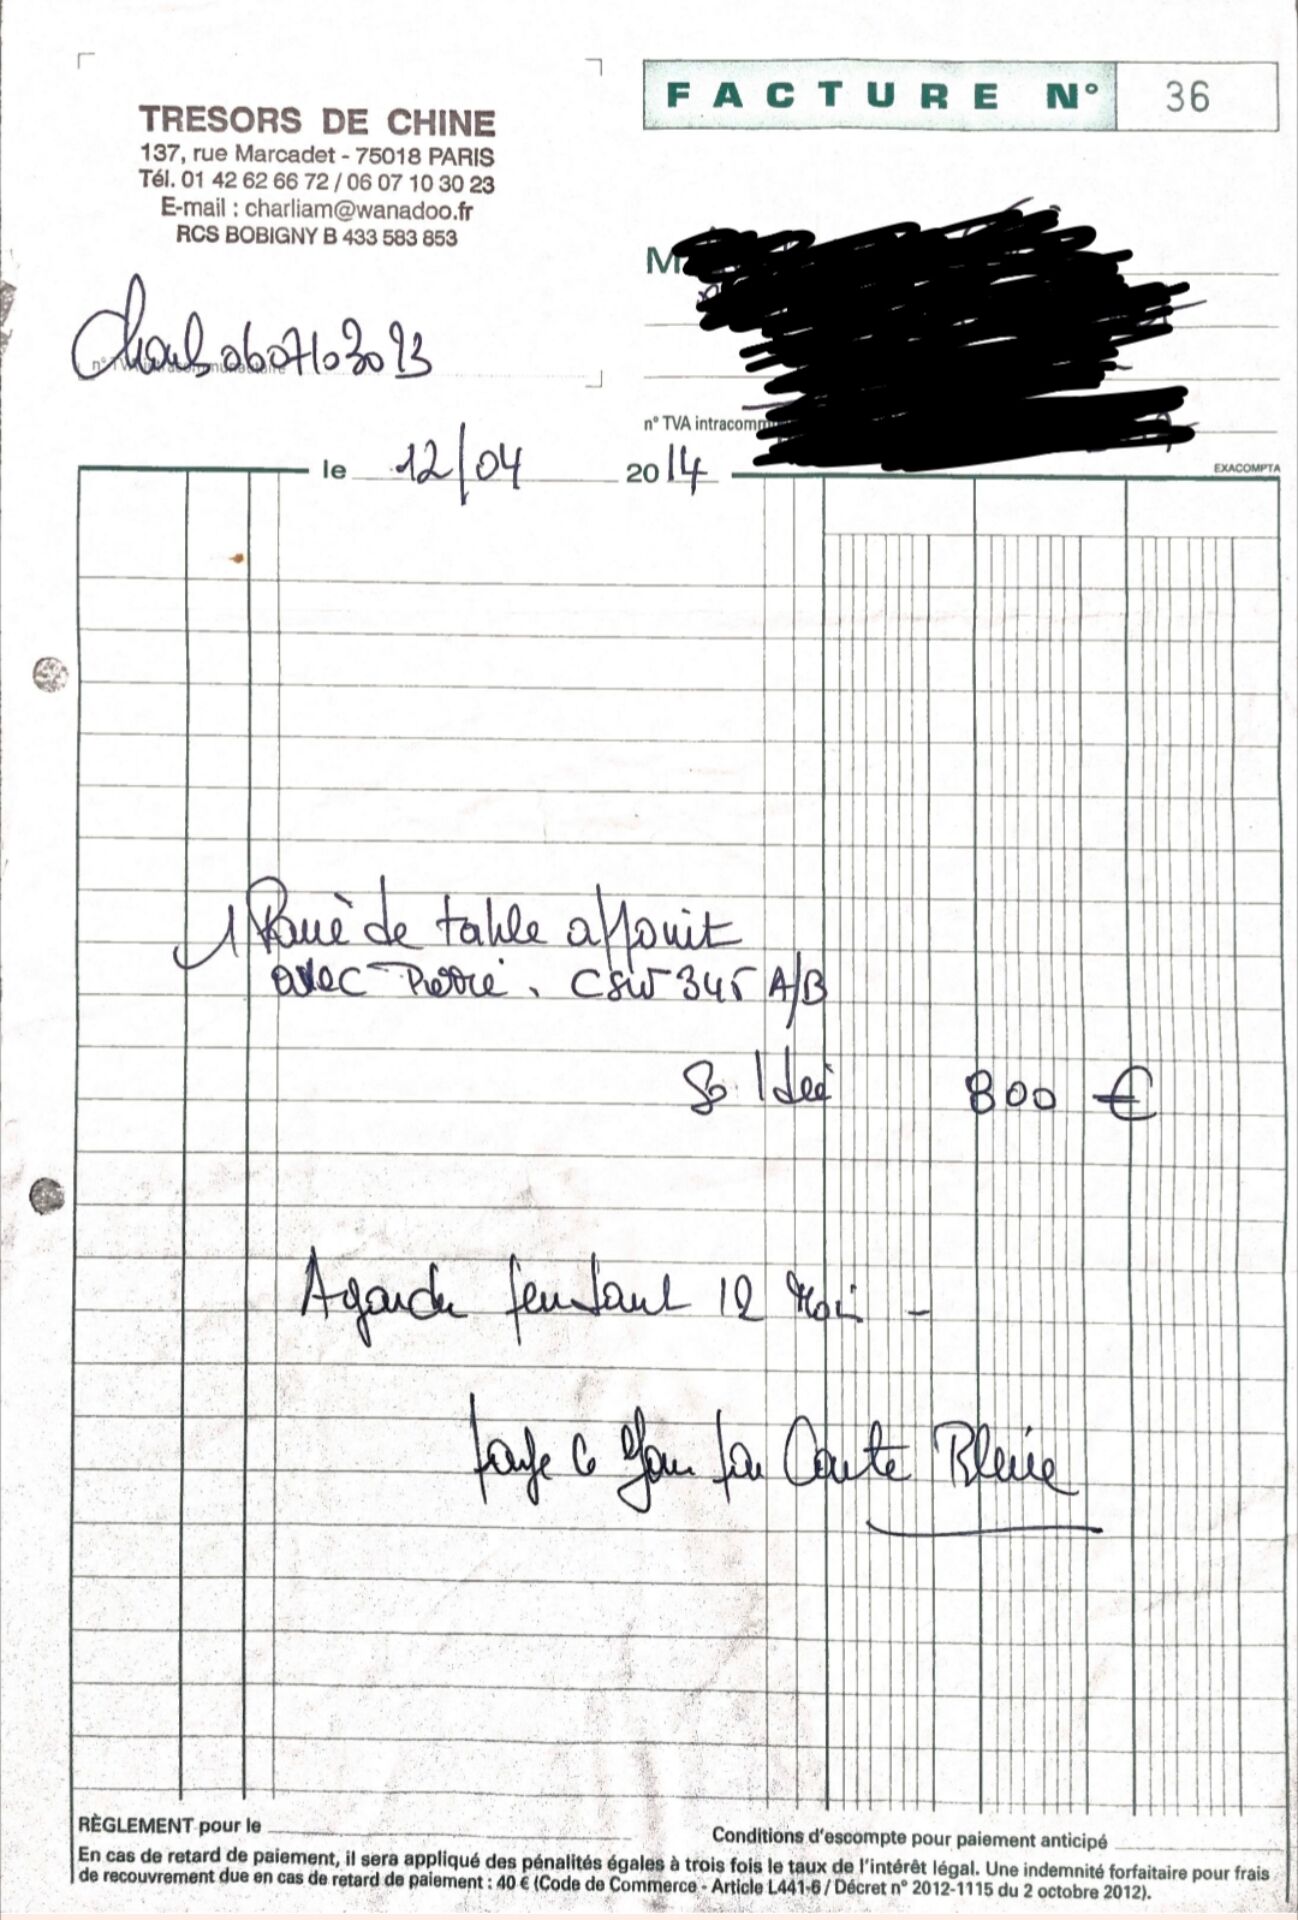 FACTURE N° 36
TRESORS DE CHINE
137, rue Marcadet - 75018 PARIS
Tél. 01 42 62 66 72 / 06 07 10 30 23
E-mail : charliam@wanadoo.fr
RCS BOBIGNY B 433 583 853
M
0607103023
n° TVA intracommunautaire
n° TVA intracomm
le 12/04 2014
EXACOMPTA
1 de table
avec CSW 345 A/B
Soldeé 800 €
12 Moi -
Carte Bleue
RÈGLEMENT pour le
Conditions d'escompte pour paiement anticipé
En cas de retard de paiement, il sera appliqué des pénalités égales à trois fois le taux de l'intérêt légal. Une indemnité forfaitaire pour frais
de recouvrement due en cas de retard de paiement : 40 € (Code de Commerce - Article L441-6 / Décret n° 2012-1115 du 2 octobre 2012).